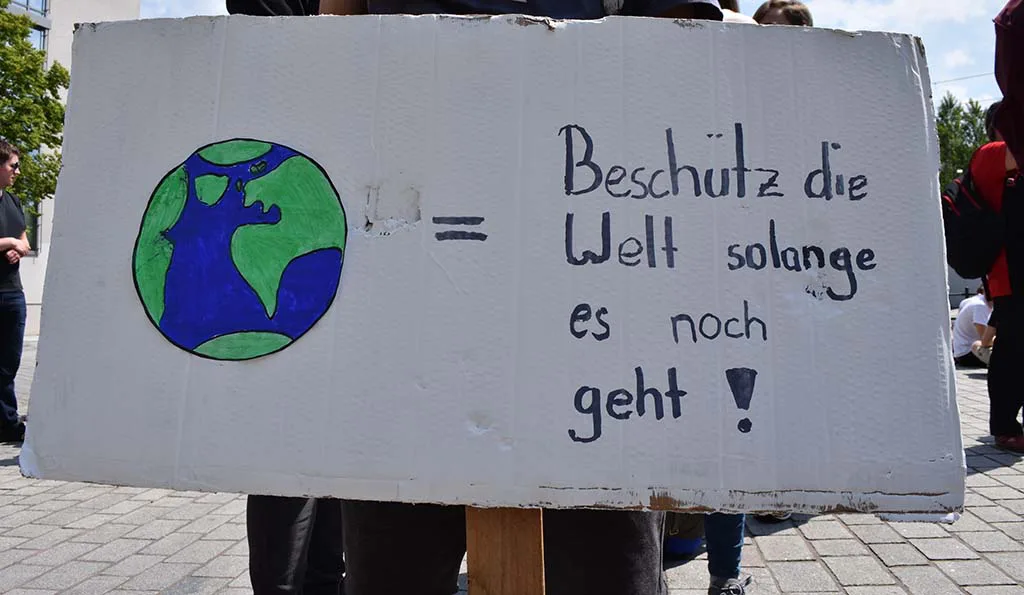 = Beschütz die
Welt solange
es noch
geht !